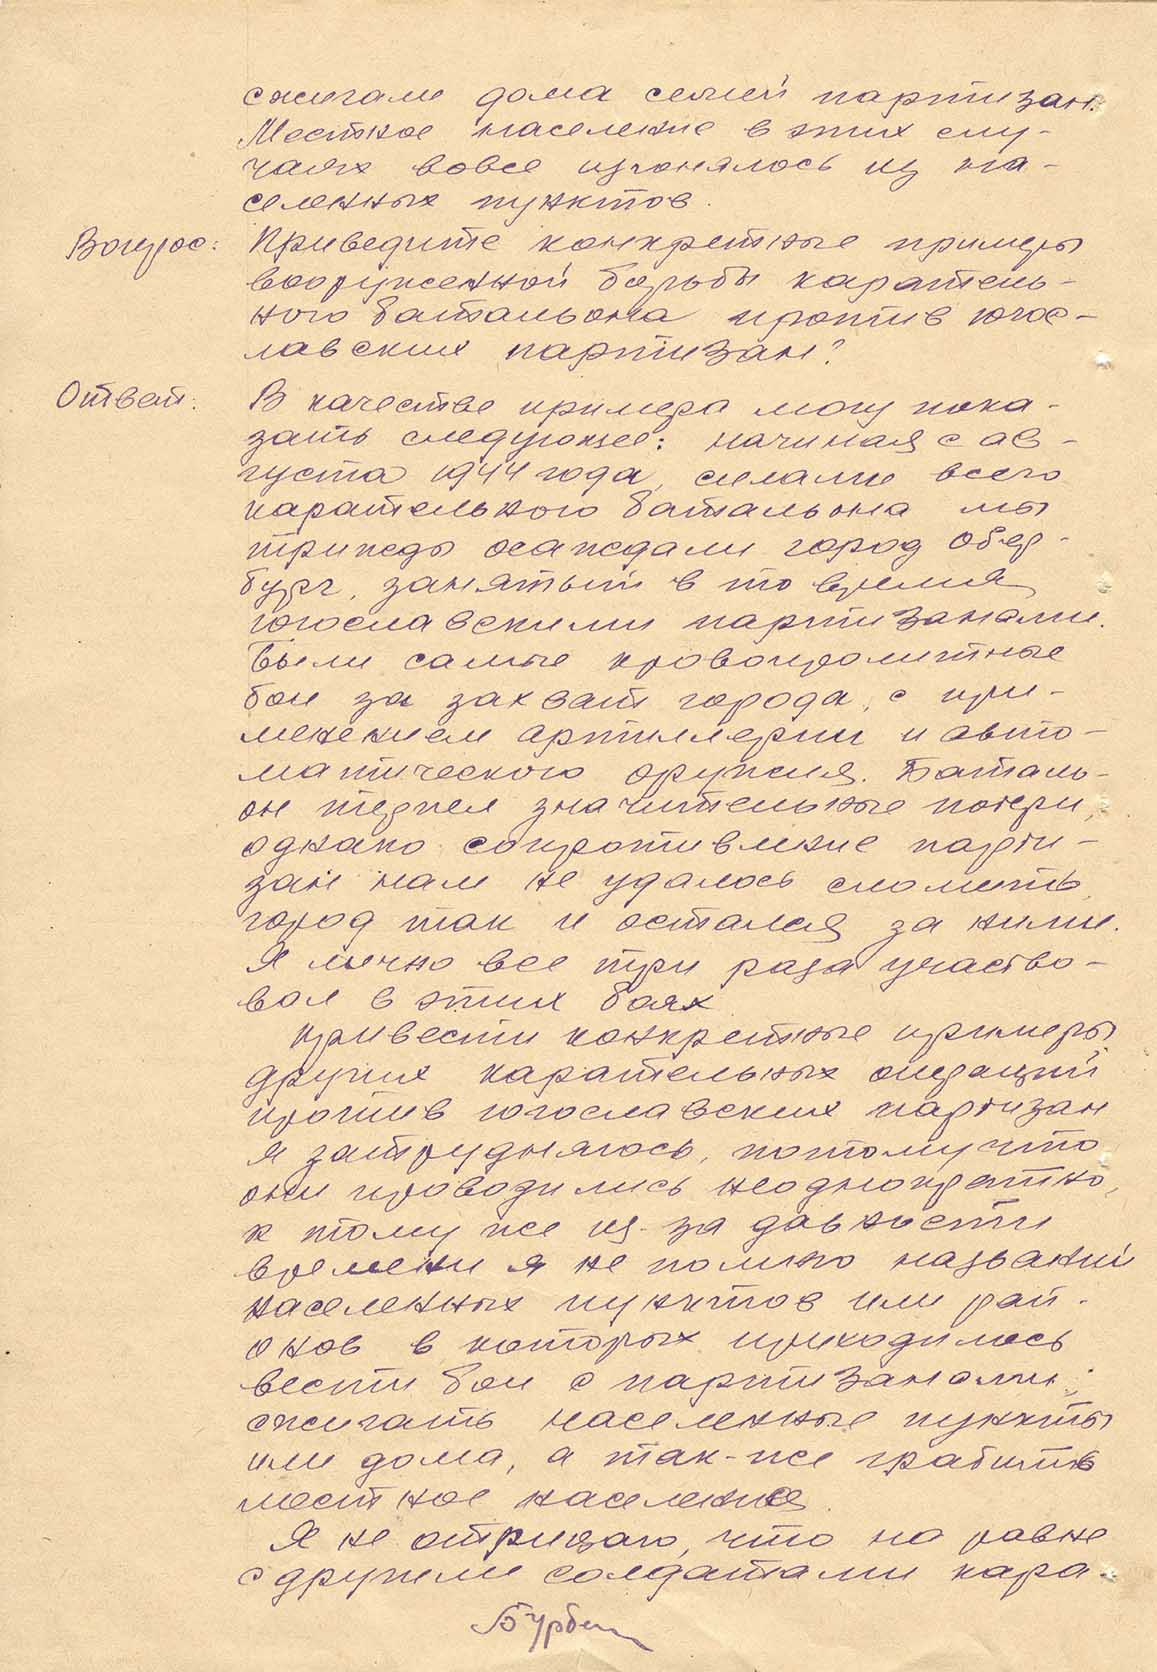 сжигали дома семей партизан.
Местное население в этих слу-
чаях вовсе изгонялось из на-
селенных пунктов.
Вопрос: Приведите конкретные примеры
вооруженной борьбы каратель-
ного батальона против югос-
лавских партизан?
Ответ: В качестве примера могу пока-
зать следующее: начиная с ав-
густа 1944 года, силами всего
карательного батальона мы
трижды осаждали город Обер-
бург, занятый в то время
югославскими партизанами.
Были самые кровопролитные
бои за захват города, с при-
менением артиллерии и авто-
матического оружия. Баталь-
он терпел значительные потери,
однако сопротивление парти-
зан нам не удалось сломить,
город так и остался за ними.
Я лично все три раза участво-
вал в этих боях
Привести конкретные примеры
других карательных операций
против югославских партизан
я затрудняюсь, потому что
они проводились неоднократно,
к тому же из-за давности
времени я не помню названий
населенных пунктов или рай-
онов в которых приходилось
вести бои с партизанами,
сжигать населенные пункты
или дома, а так-же грабить
местное население.
Я не отрицаю, что на равне
с другими солдатами кара-